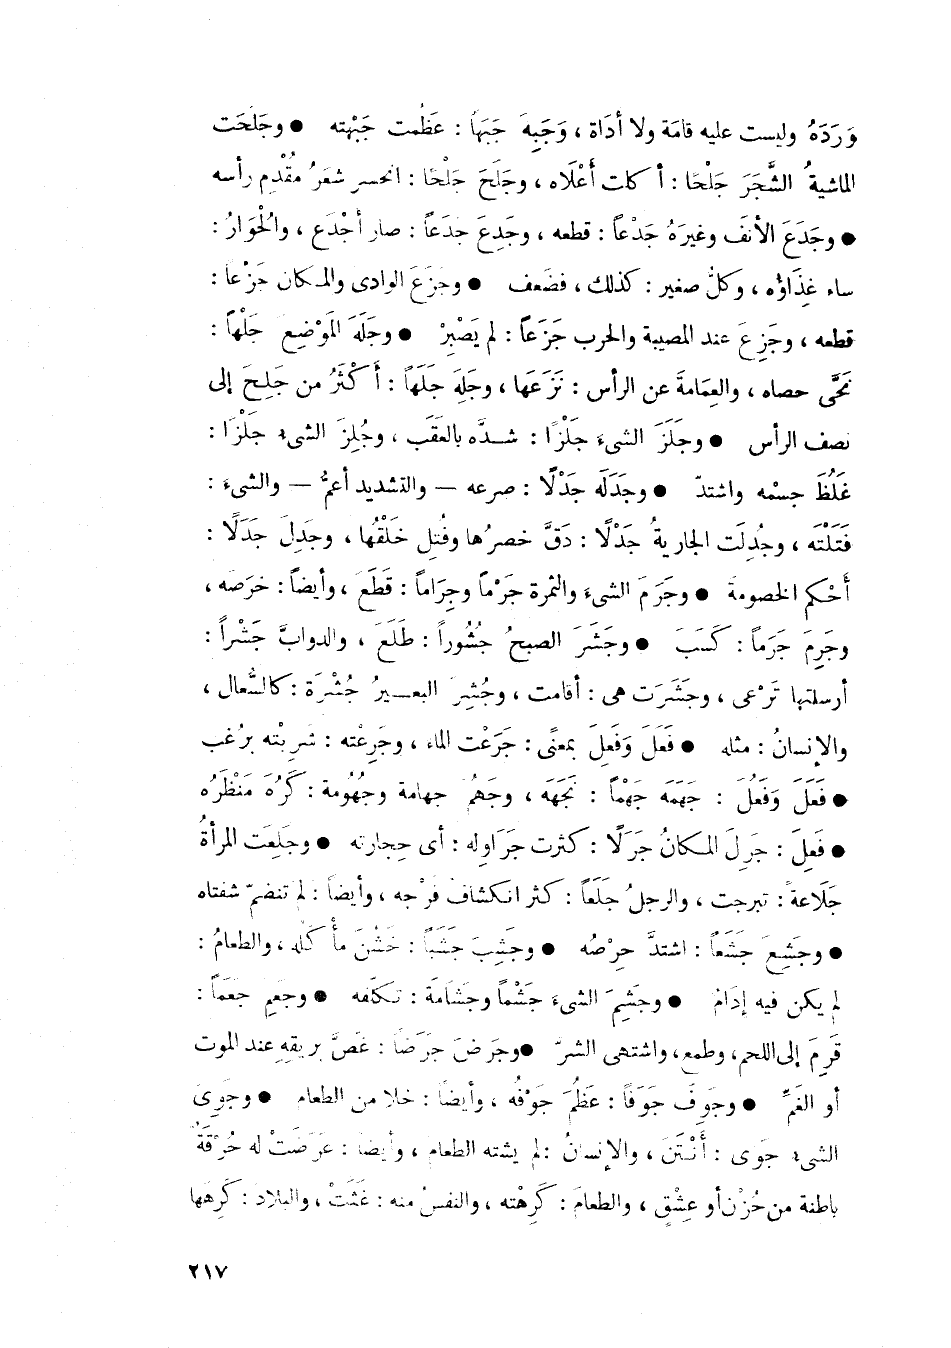 وَرَدَهُ وليست عليه قامَة ولا أدَاة ، وَجَبِهَ جَبَهاً : عَظُمت جَبْهته ● وجَلَحَت
الماشيةُ الشَّجَرَ جَلْحًا : أكلت أَعْلَاه ، وجَلَحَ جَلْحًا : انحسر شعَرُ مُقْدِم رأسه
● وجَدَعَ الأنفَ وغيرَهُ جَدْعاً : قطعه ، وجَدِعَ جَدَعاً : صار أَجْدَع ، والْحُوَارُ :
ساء غِذَاؤه ، وكلُّ صغير : كذلك ، فضَعف ● وجزَعَ الوادى والمكان جَزْعاً :
قطعه ، وجَزِعَ عند المصيبة والحرب جَزَعاً : لم يَصْبِرْ ● وجَلَهَ المَوْضِعَ جَلْهاً :
نَحَّى حصاه ، والعِمَامةَ عن الرأس : نَزَعَها ، وجَلِهَ جَلَهاً : أَكْثَرُ من جَلِحَ إلى
نصف الرأس ● وجَلَزَ الشىءَ جَلْزًا : شدَّه بالعَقَب ، وجُلِزَ الشىء جلْزًا :
غَلُظَ جسْمه واشتدّ ● وجَدَلَه جَدْلًا : صرعه — والتشديد أعمُّ — والشىءَ :
فَتَلْتَه ، وجُدِلَت الجاريةُ جَدْلًا : دَقَّ خصرُها وفُتِل خَلْقُها ، وجَدِلَ جَدَلًا :
أَحْكم الخصومةَ ● وجَرَمَ الشىءَ والثمرة جَرْماً وجِرَاماً : قَطَعَ ، وأيضاً : خرَصَه ،
وجَرِمَ جَرَماً : كَسَبَ ● وجَشَرَ الصبحُ جُشُوراً : طَلَعَ ، والدوابَّ جَشْراً :
أرسلتها تَرْعى ، وجَشَرَت هى : أقامت ، وجُشِرَ البعيرُ جُشْرَة : كالسُّعال ،
والإنسانُ : مثله ● فَعَلَ وَفَعِلَ بمعنًى : جَرَعْت الماء ، وجَرِعْته : شربْته برُغب
● فَعَلَ وَفَعُلَ : جَهَمَه جَهْماً : نَجَهَه ، وجَهُم جهامة وجُهُومة : كَرُهَ مَنْظَرُه
● فَعِلَ : جَرِلَ المكانُ جَرَلًا : كثرت جَرَاوِله : أى حِجارته ● وجَلِعَت المرأةُ
جَلَاعةً : تبرجت ، والرجلُ جَلَعاً : كثر انكشافُ فرْجه ، وأيضاً : لم تنضمّ شفتاه
● وجَشِعَ جَشَعاً : اشتدَّ حِرْصُه ● وجَشِبَ جَشَباً : خَشُنَ مأْكله ، والطعامُ :
لم يكن فيه إدَامٌ ● وجَشِمَ الشىءَ جَشْماً وجَشَامَةَ : تكلّفه ● وجَعِمَ جَعَماً :
قَرِمَ إلى اللحم ، وطمع ، واشتهى الشرّ ● وجَرِضَ جَرَضاً : غَصَّ بريقِه عند الموت
أو الغَمِّ ● وجَوِفَ جَوَفاً : عظُمَ جَوْفُه ، وأيضًا : خلا من الطعام ● وجَوِىَ
الشىء جَوى : أَنْتَنَ ، والإنسانُ : لم يشته الطعام ، وأيضا : عرَضَتْ له حُرْقَةٌ
باطنة من حُزْن أو عِشْقٍ ، والطعامَ : كَرِهْته ، والنفسُ منه : غَثَتْ ، والبلادَ : كَرِهَها
٢١٧